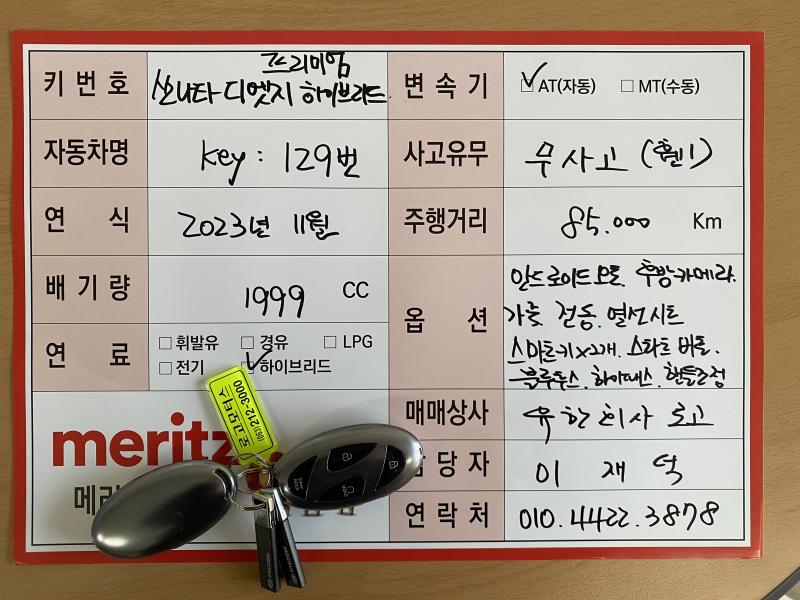 키 번 호
프리미엄
쏘나타 디엣지 하이브리드
변 속 기
AT(자동) MT(수동)
자동차명
key : 129번
사고유무
무사고 (휀1)
연 식
2023년 11월
주행거리
85.000 Km
배 기 량
1999 CC
옵 션
안드로이드오토. 후방카메라.
가죽 전동. 열선시트
스마트키x2개. 스타트 버튼.
블루투스. 하이패스. 핸들조정
연 료
휘발유 경유 LPG
전기 하이브리드
매매상사
유한회사 로고
당 자
이 재 덕
연 락 처
010.4422.3878
meritz
메리
로고모터스
(063) 212-3000
HYUNDAI